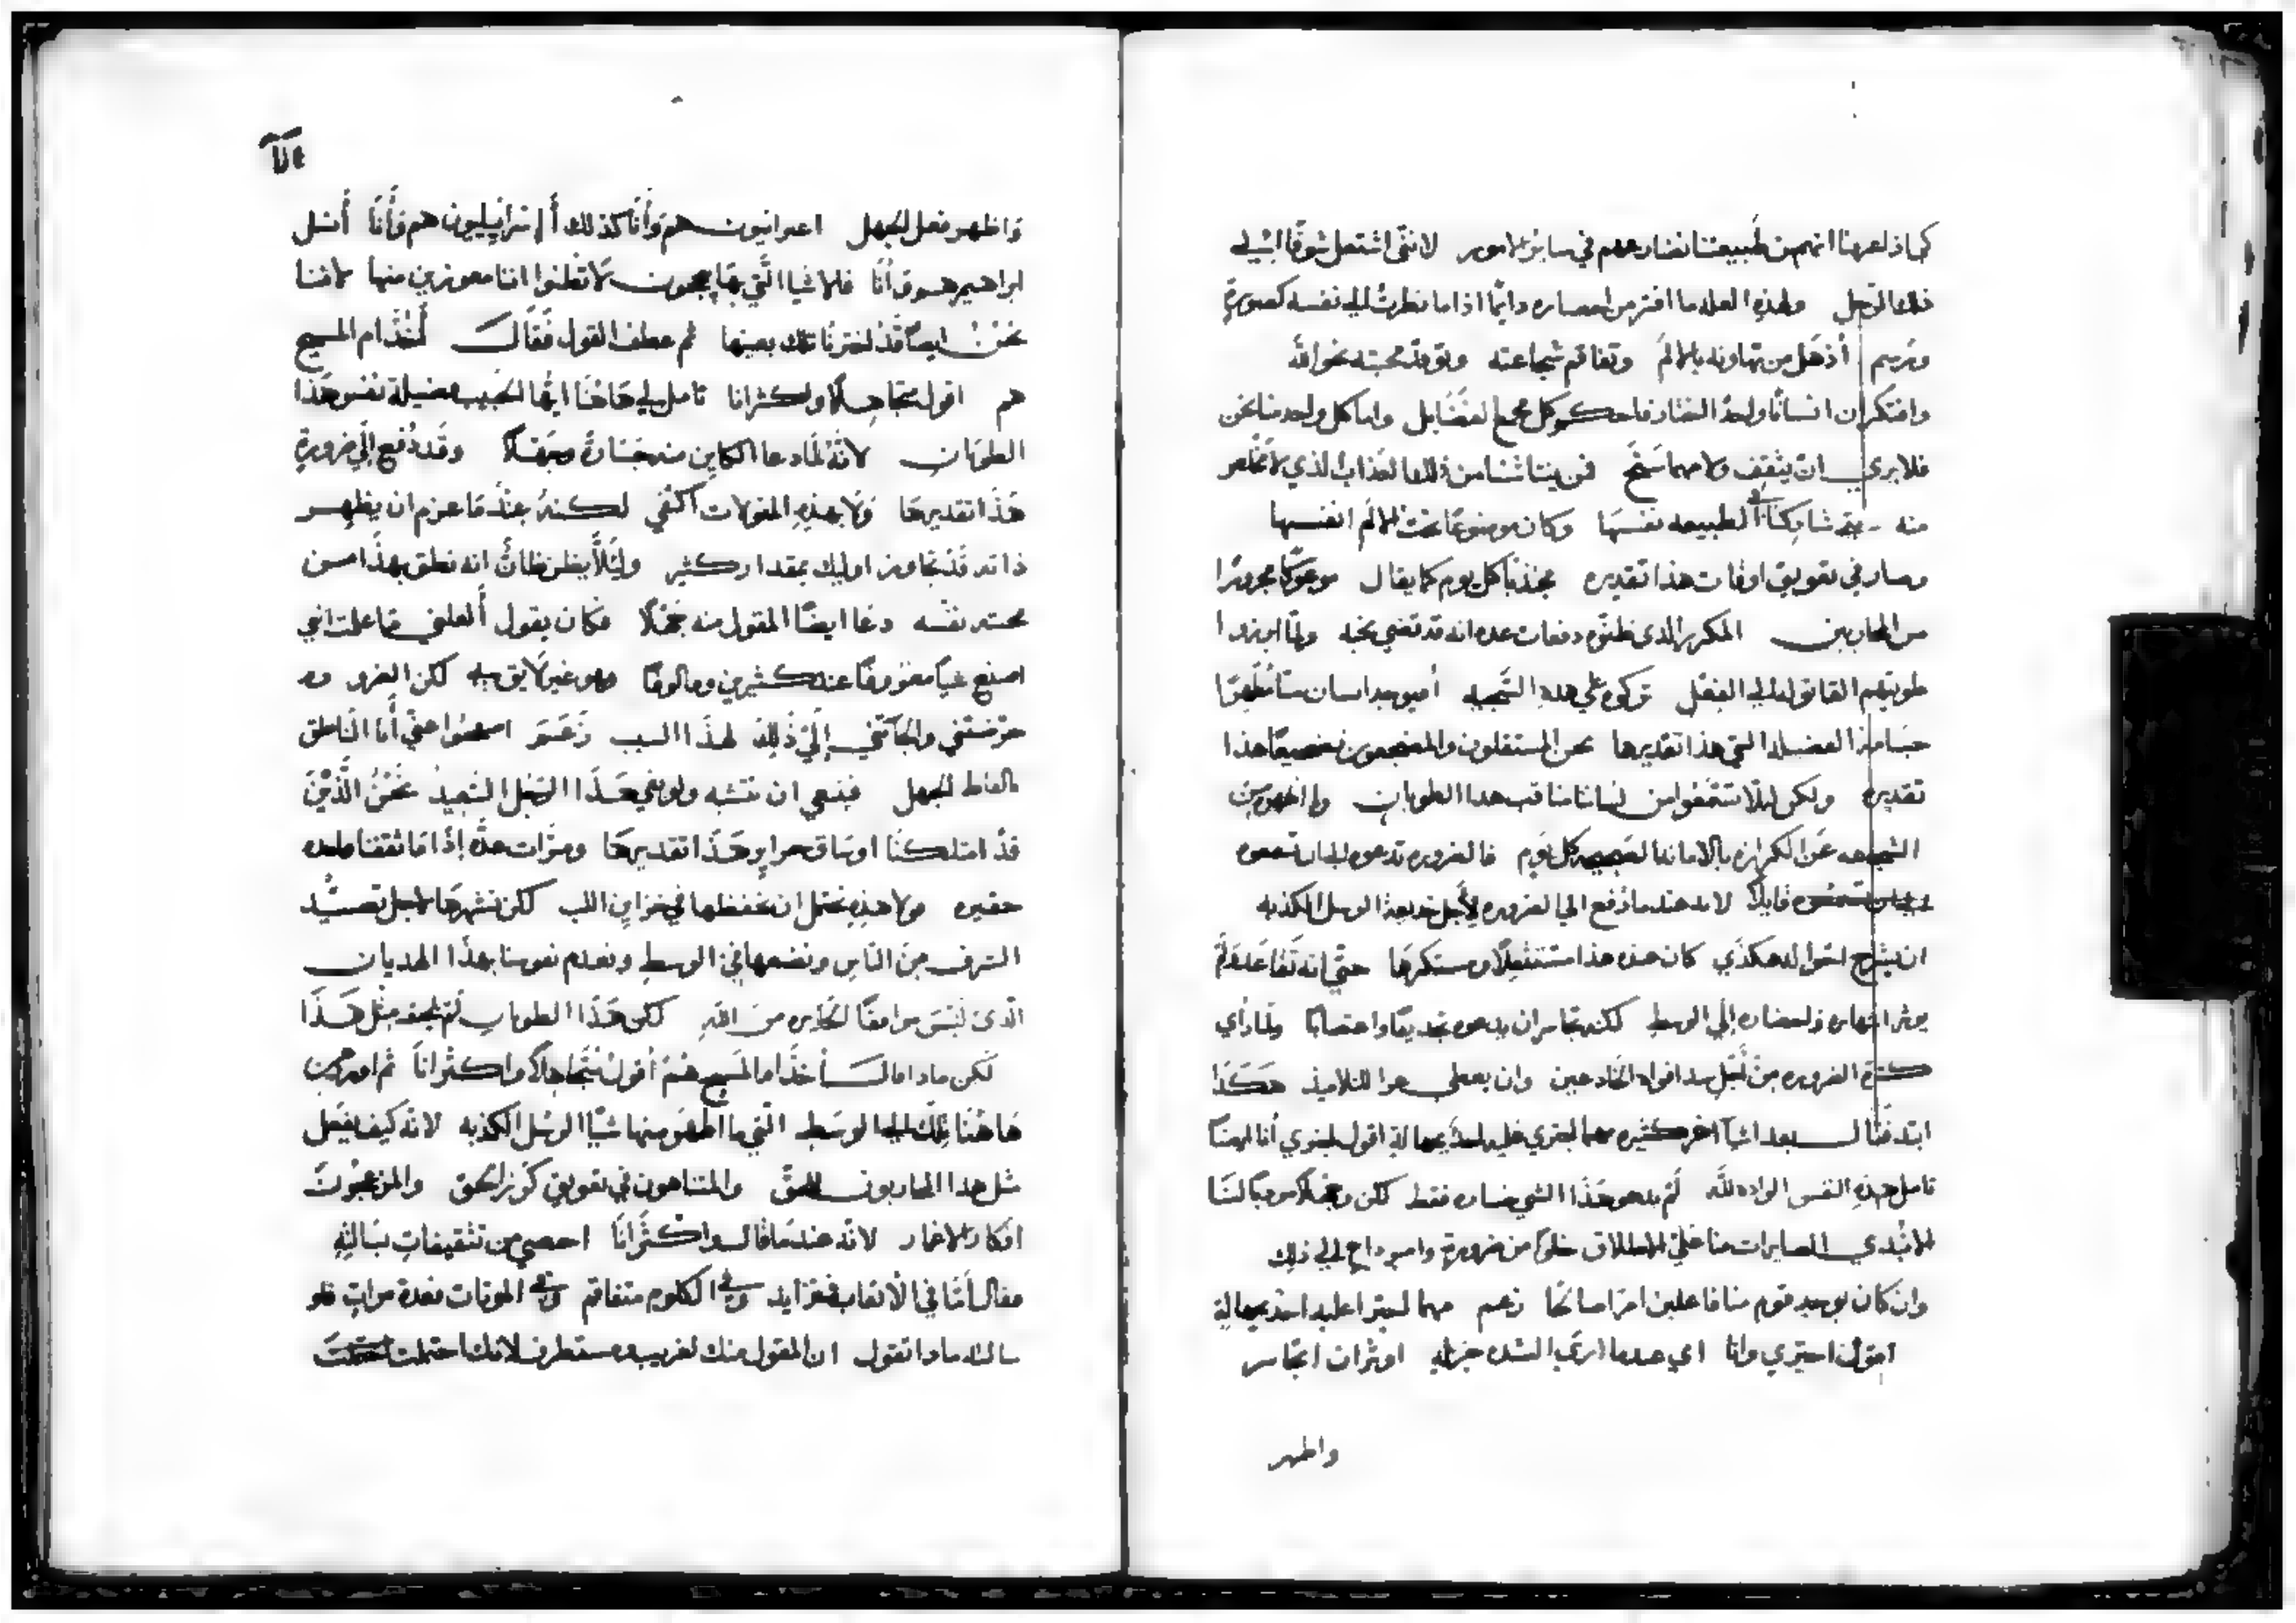 كما ذا عرهنا انهم من طبيعتنا نضارعهم في ساير الامور لانني اشتعل شوقا اليلي
ذلك الرجل ولهذه العله ما افتر من احصاره دايما اذا ما نظرت الي نفسه كصورة
وترسم أذهل من تهاونه بالالم وتفاقم شجاعته وتوقد محبته نحو الله
وافتكر ان انسانا واحدا اختار فاحكم كل مجمع الفضايل واما كل واحد منا نحن
فلا يري ان يثقف ولا مهما سنح فمن ينتاشنا من ذلك العذاب الذي لا مخلص
منه شاركنا في الطبيعه نفسها وكان موضوعا تحت الالام انفسها
وصار في تعويق اوقات هذا تقديره مجذبا كل يوم كما يقال موعوكا مجرورا
من المحاربين المكرر الذي ظنوه دفعات عده انه قد قضي نحبه ولما ابرزوا
طويتهم القاتوله الي الفعل تركوه علي هذه السجيه
جسامة الفضيله التي هذا تقديرها نحن المستقلون والمضجعون تضجيعا هذا
تقديره ولكن ليلا تسمعوا من لساننا مناقب هذا الطوبان
الشجيعه عن الكرازه بالامانه الصحيحه كل يوم فالضروره تدعوه
قايلا لانه عندما دفع الي الضروره لاجل خديعة الرسل الكذبه
ان يشرح احواله هكذي كان عنده هذا مستثقلا ومستكرها حتي انه تقاعد ولم
يوثر اشهاره واحضاره الي الوسط لكنه تجاسر ان يدعوه تجديفا واعتصابا ولما راي
كثرة الضروره من قبل سد افواه الخادعين وان يعطي عزا للتلاميذ هكذا
ابتد فقال بعد اشيا اخر كثيره مهما اجتري عليه احد بجهاله اقول اجتري أنا ايضا
تامل هذه النفس الواده لله لم يدعو هذا الشي خساره فقط لكن وجهلا موعبا لنا
الا نبدي الصايرات منا علي الاطلاق خلوا من ضرورة وامر داع الي ذلك
وان كان يوجد قوم منا فاعلين امرا صالحا زعم مهما اجترا عليه احد بجهالة
اقول اجتري وانا اي عندما اري الشده جزيله اوثرت اتجاسر
واظهر
واظهر فعل الجهل اعبرانيون هم وأنا كذلك أاسرائيليون هم وأنا أنسل
ابراهيم هم وأنا فالاشيا التي بها يبهجون لا تظنوا اننا معوزين منها لاننا
نحن ايضا قد احترنا تلك بعينها ثم عطف القول فقال أخدام المسيح
هم اقول متجاهلا واكثر انا تامل لي هاهنا ايها الحبيب فضيلة نفس هذا
الطوبان لانه لما دعا الكاين منه جسارة وجهلا وقد دفع الي ضرورة
هذا تقديرها ولا بهذه المقولات اكتفي لكنه عند ما عزم ان يظهر
ذاته قد تجاوز اوليك بمقدار كثير وليلا يظن ظان انه نطق بهذا من
محبته نفسه دعا ايضا المقول منه جهلا فكان يقول ألعلني ما علمت انني
اصنع شيا معروفا عند كثيرين ومالوفا وهو غير لايق به لكن الضروره
حرضتني والجاتني الي ذلك لهذا السبب زعم اصفحوا عني أنا الناطق
بالفاظ الجهل فينبغي ان نتشبه ولو بفي هذا الرجل السعيد نحن الذين
قد امتلكنا اوساق جراير هذا تقديرها ومرات عده اذا ما ثقفنا ملحه
حقيره ولا هذه نحتمل ان نحفظها في خزاين اللب لكن نشهرها لاجل تصيد
الشرف من الناس ونضعها في الوسط ونعدم نفوسنا بهذا الهديان
الذي ليس موافقا لجايزه من الله لكن هذا الطوبان لم يلحقه مثل هذا
لكن ماذا قال أخدام المسيح هم أقول متجاهلا واكثر انا ثم اورد من
هاهنا تلك الي الوسط التي ما اظهر منها شيا الرسل الكذبه لانه كيف يفعل
مثل هذا المحاربون للحق والمتناهون في تعويق كرز الحق والمزعجون
افكار الاغمار لانه عندما قال واكثر انا احصي من تثقيفات بسالته
فقال أما في الاتعاب فبتزايد وفي الكلوم متفاقم وفي الموتات بعدة مرات فلو
سالته ماذا تقول ان المقول منك لغريب ومستطرف لانك احتملت